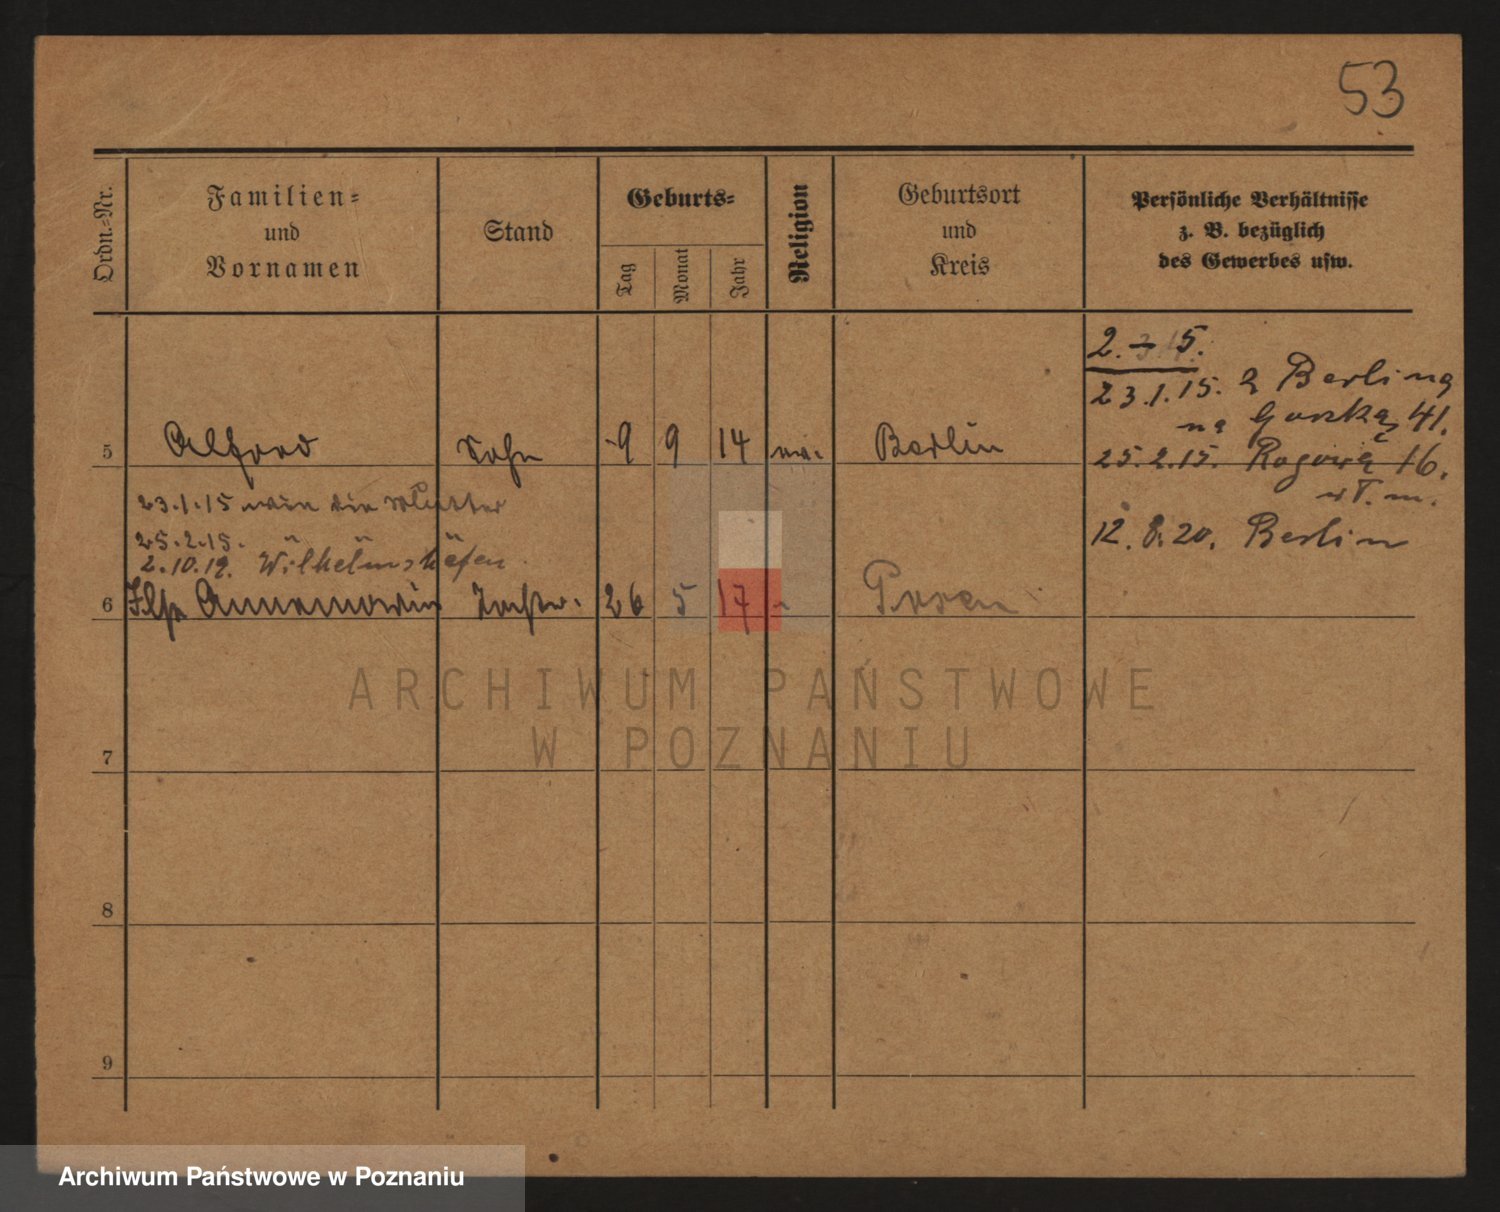 53
Ordn.-Nr.
Familien-
und
Vornamen
Stand
Geburts-
Tag
Monat
Jahr
Religion
Geburtsort
und
Kreis
Persönliche Verhältnisse
z. B. bezüglich
des Gewerbes usw.
2. 5.
23.1.15. Z Berlina
na 41.
5 Alfred Sohn 9 9 14 Berlin
25.2.15. 16.
23.1.15 wie die Mutter
25.2.15.
12.8.20. Berlin
2.10.19. Wilhelmshafen
6 Ilse Annemarie Tochter. 26 5 17 Posen
ARCHIWUM PAŃSTWOWE
W POZNANIU
7
8
9
Archiwum Państwowe w Poznaniu